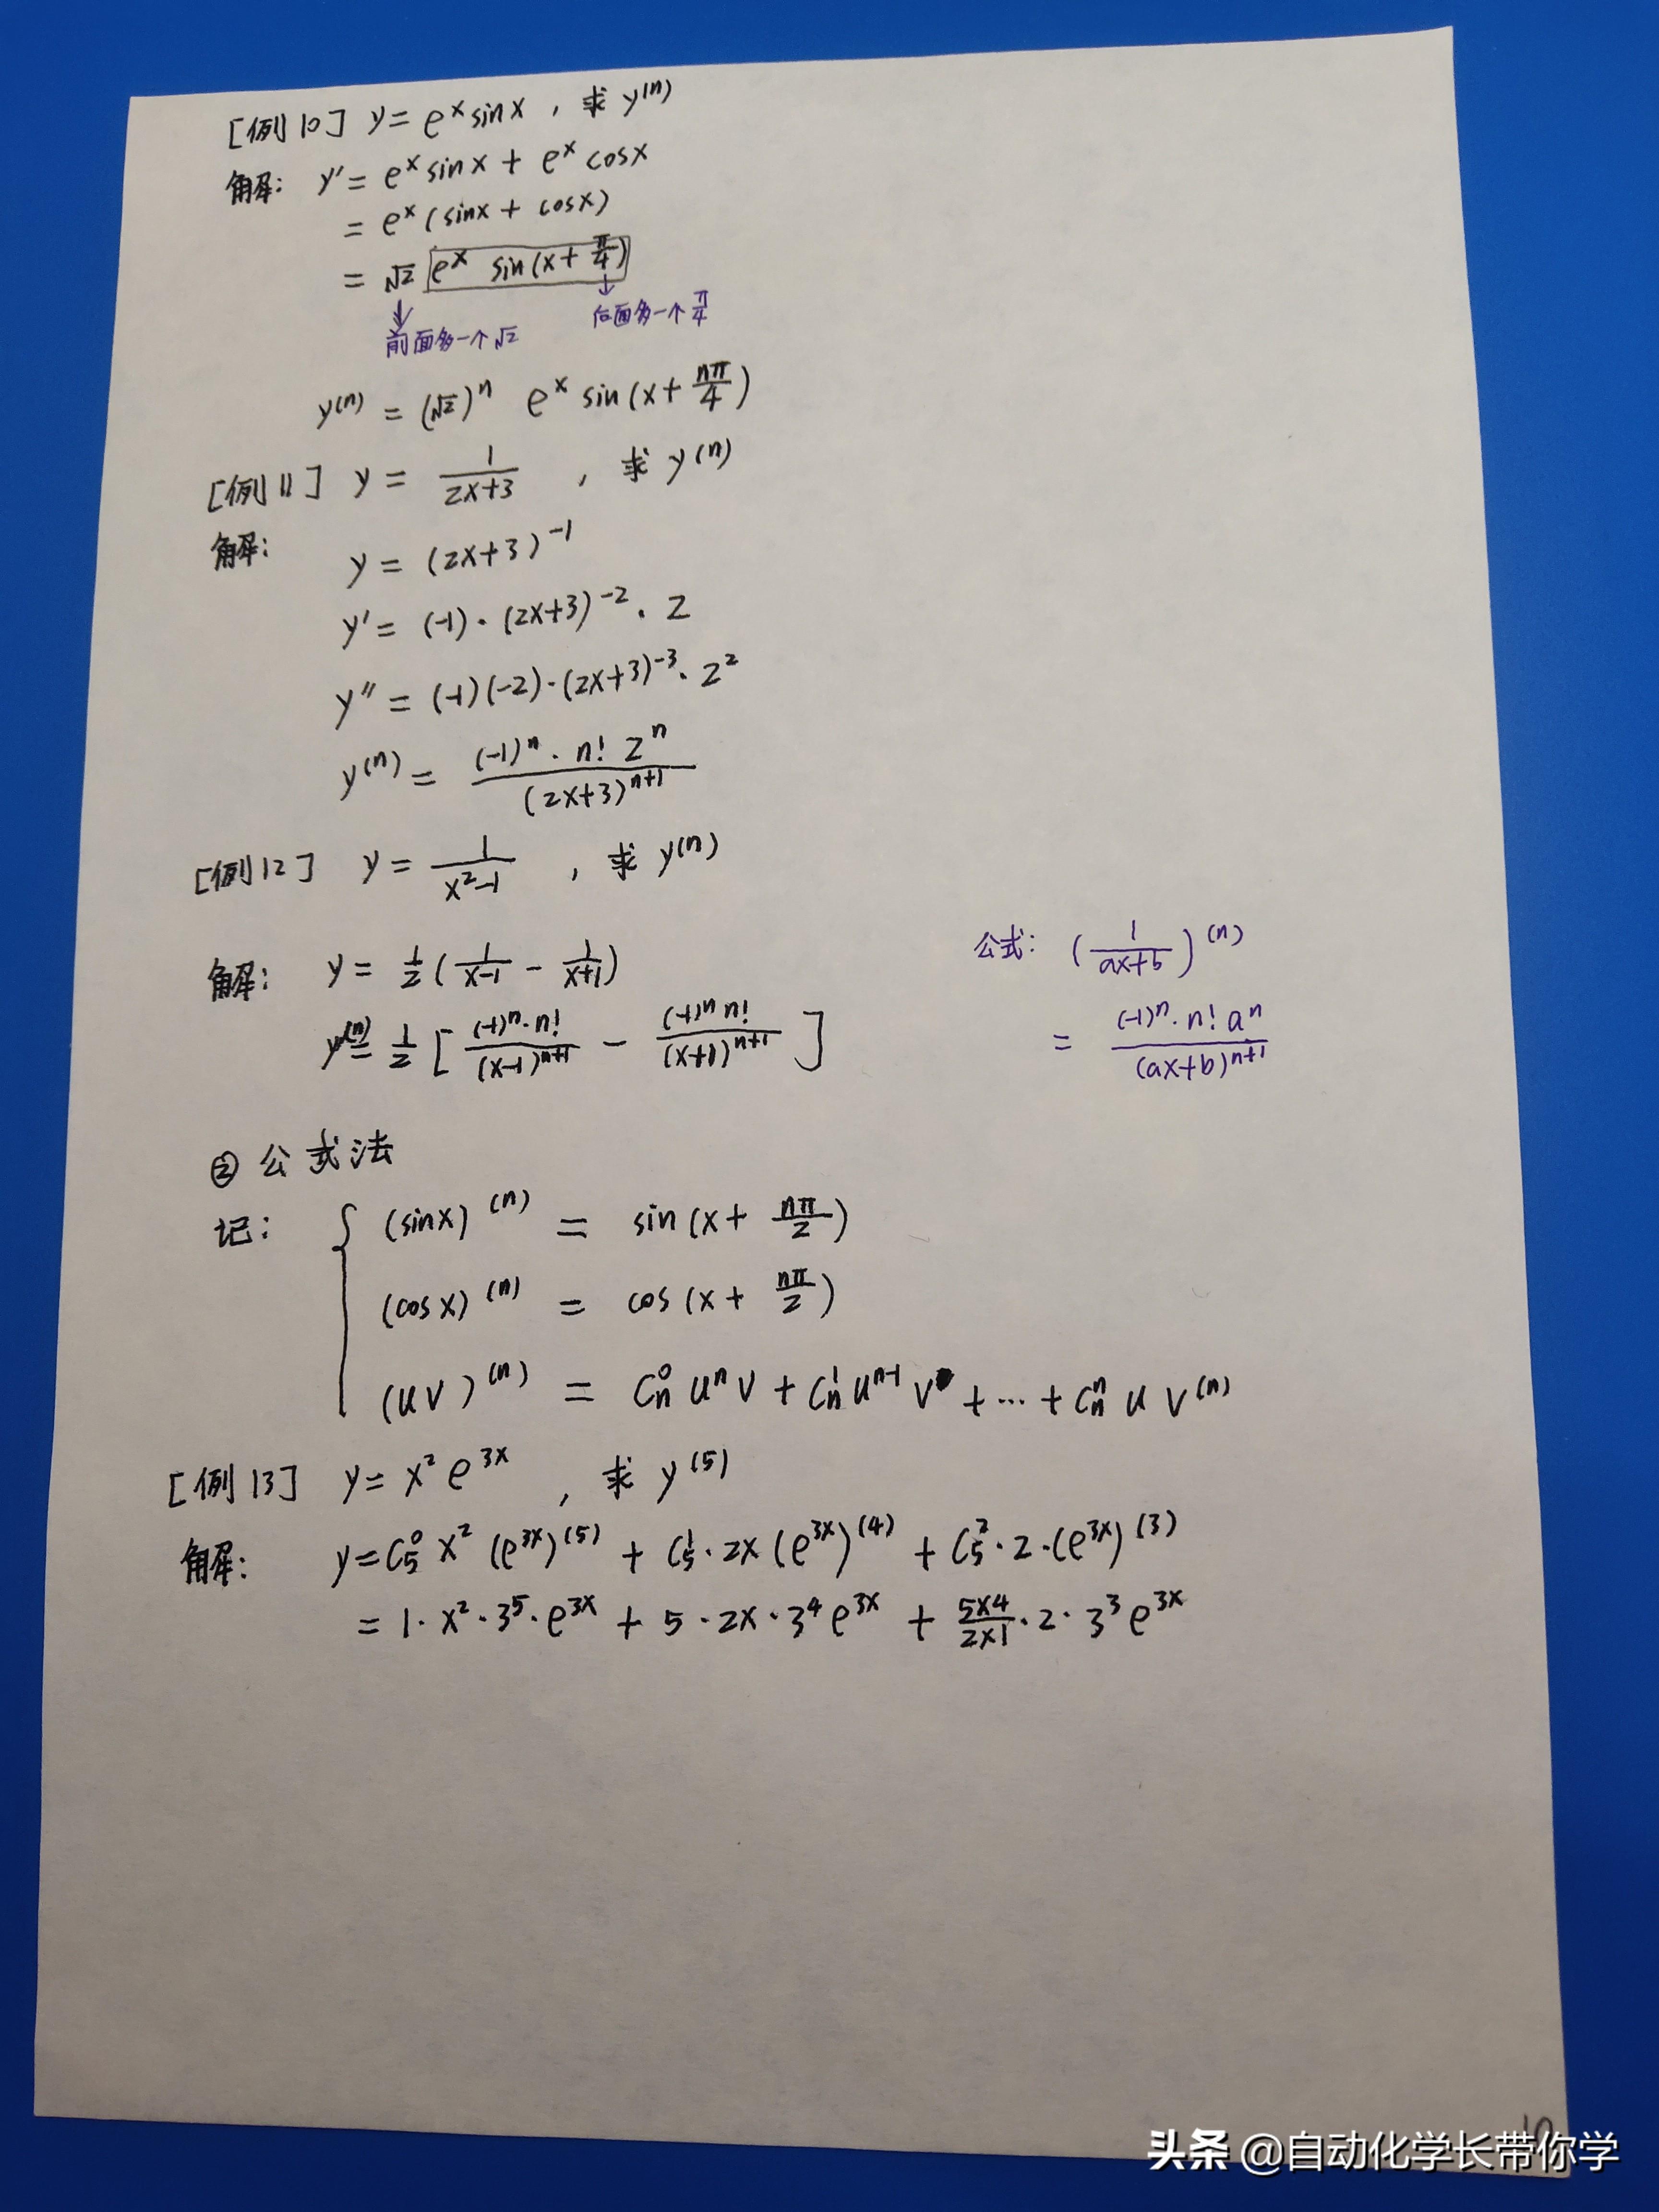 [例10] y = e^x sinx , 求 y^(n)
解: y' = e^x sinx + e^x cosx
= e^x (sinx + cosx)
= √2 e^x sin(x + π/4)
前面多一个√2 后面多一个 π/4
y^(n) = (√2)^n e^x sin(x + nπ/4)
[例11] y = 1/(2x+3) , 求 y^(n)
解: y = (2x+3)^-1
y' = (-1)·(2x+3)^-2 · 2
y'' = (-1)(-2)·(2x+3)^-3 · 2^2
y^(n) = (-1)^n · n! 2^n / (2x+3)^(n+1)
[例12] y = 1/(x^2-1) , 求 y^(n)
解: y = 1/2 (1/(x-1) - 1/(x+1))
y^(n) = 1/2 [ (-1)^n · n! / (x-1)^(n+1) - (-1)^n n! / (x+1)^(n+1) ]
公式: (1/(ax+b))^(n)
= (-1)^n · n! a^n / (ax+b)^(n+1)
② 公式法
记: { (sinx)^(n) = sin(x + nπ/2)
(cosx)^(n) = cos(x + nπ/2)
(uv)^(n) = C_n^0 u^n v + C_n^1 u^(n-1) v + ... + C_n^n u v^(n)
[例13] y = x^2 e^3x , 求 y^(5)
解: y = C_5^0 x^2 (e^3x)^(5) + C_5^1 · 2x (e^3x)^(4) + C_5^2 · 2 · (e^3x)^(3)
= 1 · x^2 · 3^5 · e^3x + 5 · 2x · 3^4 e^3x + 5×4/2×1 · 2 · 3^3 e^3x
头条 @自动化学长带你学